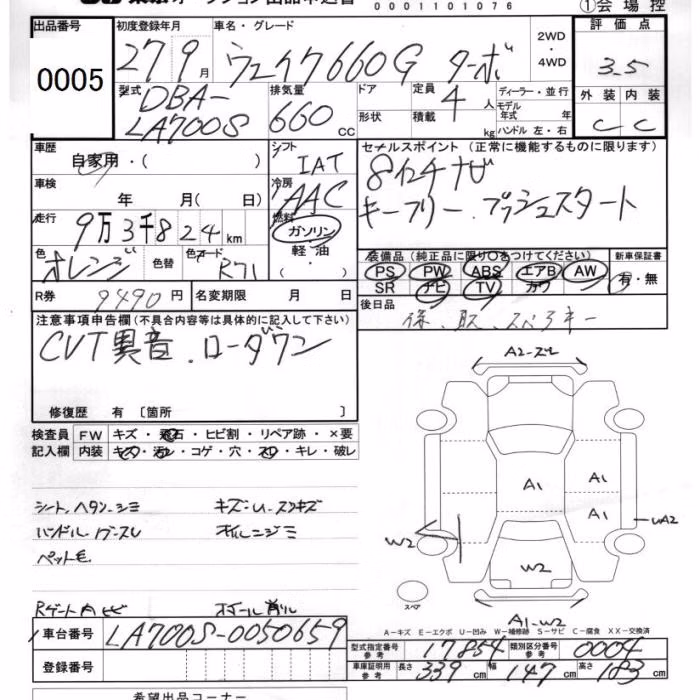 0001101076
①会場控
出品番号
0005
初度登録年月
27 9月
車名・グレード
ウェイク660G ターボ
2WD
・
4WD
評価点
3.5
外装 内装
C C
型式
DBA-
LA700S
排気量
660 cc
ドア
形状
定員 4 人
積載 kg
ディーラー・並行
モデル
年式 年
ハンドル 左・右
車歴
自家用・( )
シフト
IAT
セールスポイント(正常に機能するものに限ります)
8インチナビ
キーフリー.プッシュスタート
車検
年 月(日 )
冷房
AAC
走行
9万3千824km
燃料
ガソリン
軽油
・( )
色
オレンジ
色替
色コード
R71
装備品(純正品に限り○をつけてください)
PS PW ABS エアB AW
SR ナビ TV カワ
新車保証書
有・無
R券
9490円
名変期限 月 日
後日品
保、取、スペアキー
注意事項申告欄(不具合内容等は具体的に記入して下さい)
CVT異音.ローダウン
修復歴 有 〔箇所 〕
検査員
記入欄
FW キズ・飛石・ヒビ割・リペア跡・×要
内装 キズ・汚レ・コゲ・穴・スレ・キレ・破レ
シート.ヘタリ.シミ
キズ:U.スリキズ
ハンドル
ペット毛
Rゲート内ヒビ
ホイール削り
A2-ズレ
A1
A1
A1
UA2
W2
W2
スペア
A1-W2
A-キズ E-エクボ U-凹み W-補修跡 S-サビ C-腐食 XX-交換済
車台番号
LA700S-0050659
登録番号
型式指定番号
参考
17854
類別区分番号
参考
0004
車庫証明用
参考
長さ 339cm
幅 147cm
高さ 183cm
希望出品コーナー